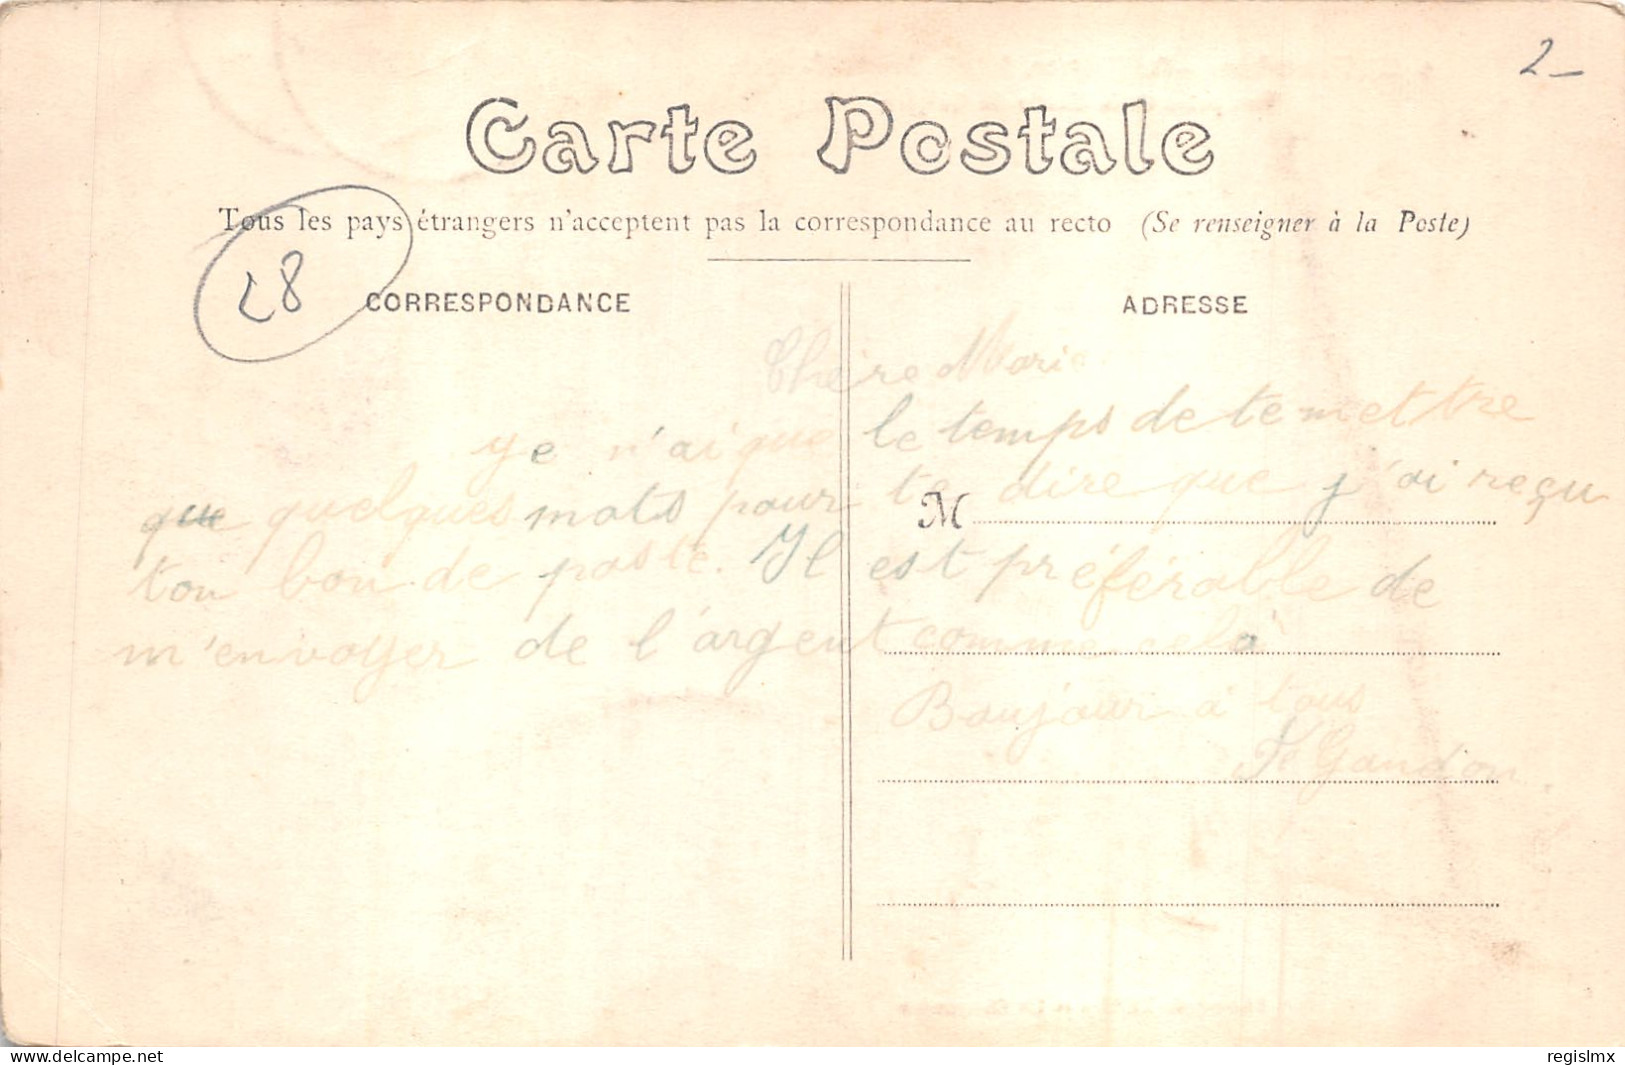 2 -
Carte Postale
Tous les pays étrangers n'acceptent pas la correspondance au recto (Se renseigner à la Poste)
28
CORRESPONDANCE
ADRESSE
Chère Marie
Je n'ai que le temps de te mettre
que quelques mots pour te dire que j'ai reçu
M
ton bon de poste. Il est préférable de
m'envoyer de l'argent comme cela
Bonjour à tous
Gandon
www.delcampe.net
regislmx